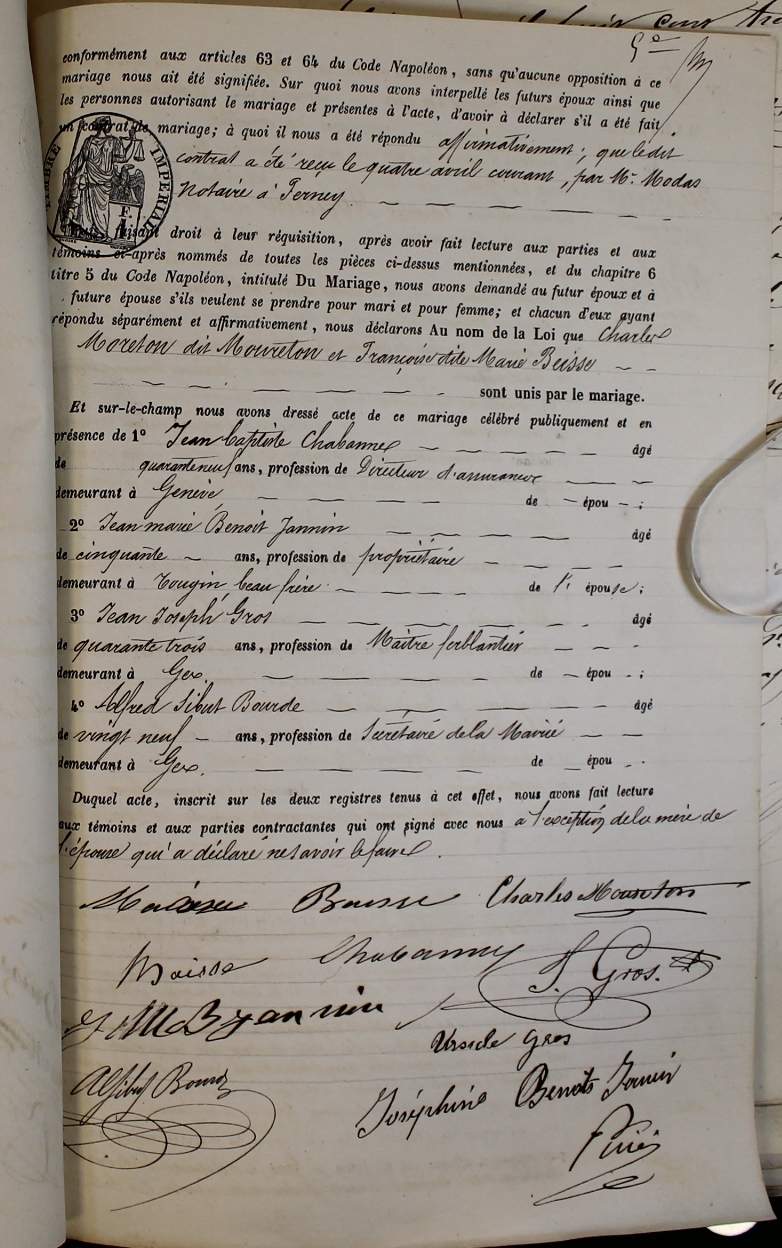 5e
conformément aux articles 63 et 64 du Code Napoléon, sans qu'aucune opposition à ce
mariage nous ait été signifiée. Sur quoi nous avons interpellé les futurs époux ainsi que
les personnes autorisant le mariage et présentes à l'acte, d'avoir à déclarer s'il a été fait
un contrat de mariage; à quoi il nous a été répondu affirmativement; que ledit
contrat a été reçu le quatre avril courant, par Me. Modas
notaire à Ferney.
TIMBRE IMPERIAL
faisant droit à leur réquisition, après avoir fait lecture aux parties et aux
témoins ci-après nommés de toutes les pièces ci-dessus mentionnées, et du chapitre 6
titre 5 du Code Napoléon, intitulé Du Mariage, nous avons demandé au futur époux et à
future épouse s'ils veulent se prendre pour mari et pour femme; et chacun d'eux ayant
répondu séparément et affirmativement, nous déclarons Au nom de la Loi que Charles
Moreton dit Moureton et Françoise dite Marie Beisse
sont unis par le mariage.
Et sur-le-champ nous avons dressé acte de ce mariage célébré publiquement et en
présence de 1° Jean Baptiste Chabannes âgé
de quaranteneuf ans, profession de Directeur d'assurances
demeurant à Genève de épou ;
2° Jean marie Benoit Jannin âgé
de cinquante ans, profession de propriétaire
demeurant à Tougin, beau frère de l' épouse;
3° Jean Joseph Gros âgé
de quarante trois ans, profession de Maître ferblantier
demeurant à Gex. de épou ;
4° Alfred Sibut Bourde âgé
de vingt neuf ans, profession de Secrétaire de la Mairie
demeurant à Gex. de épou .
Duquel acte, inscrit sur les deux registres tenus à cet effet, nous avons fait lecture
aux témoins et aux parties contractantes qui ont signé avec nous a l'exception de la mère de
l'épouse qui a déclaré ne savoir le faire.
Charles Moureton
Chabannes J. Gros.
J M B Jannin
Gros
Joséphine Benoits Jannin